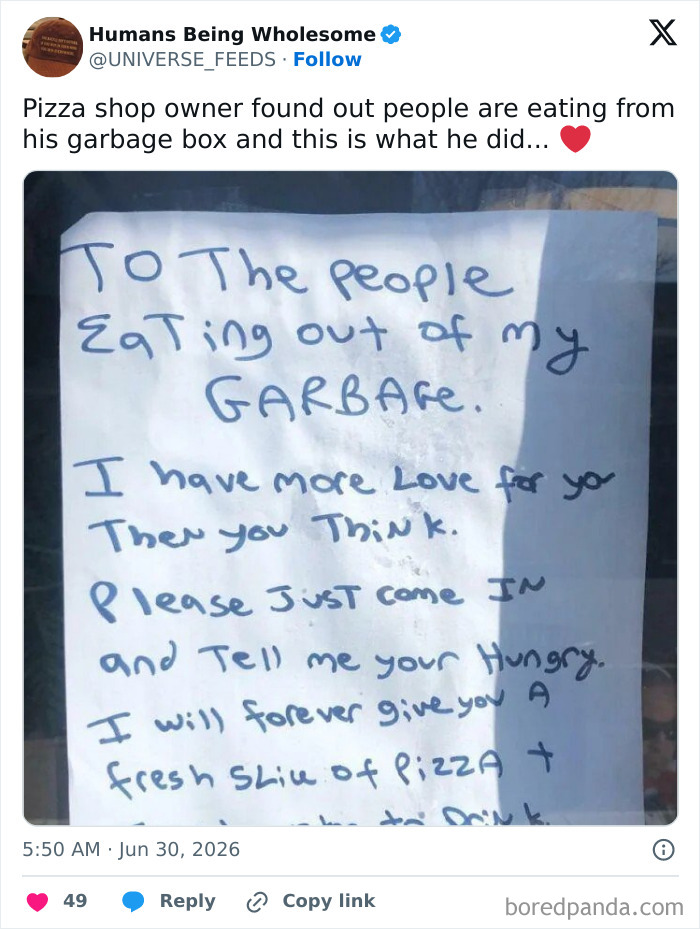 Humans Being Wholesome
@UNIVERSE_FEEDS · Follow
Pizza shop owner found out people are eating from
his garbage box and this is what he did... ❤️
To The People
EaTing out of my
GARBAGe.
I have more Love for yo
Then you Think.
Please Just come IN
and Tell me your Hungry.
I will forever give you A
fresh Sliu of PizzA +
to Drink.
5:50 AM · Jun 30, 2026
49 Reply Copy link
boredpanda.com